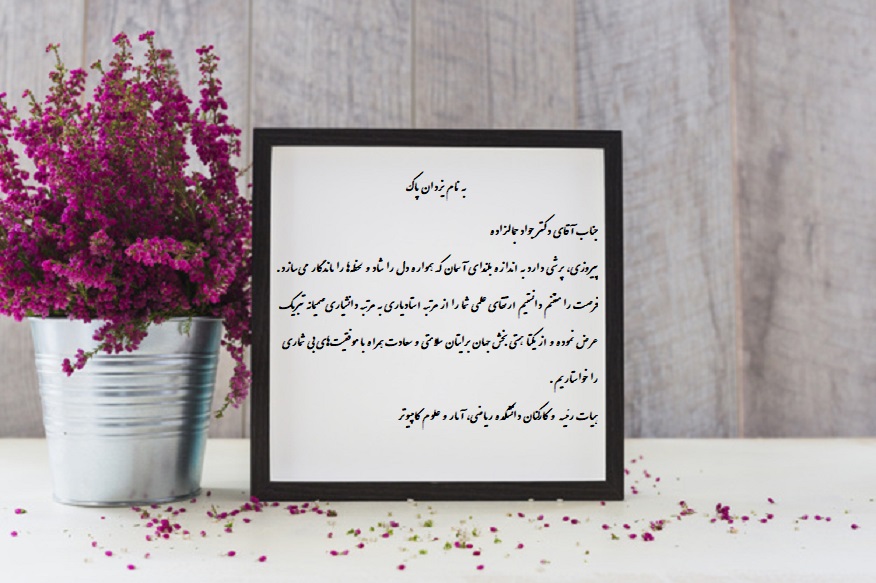 به نام یزدان پاک
جناب آقای دکتر جواد جمالزاده
پیروزی، پرشی دارد به اندازه بلندای آسمان که همواره دل را شاد و لحظه‌ها را ماندگار می‌سازد.
فرصت را مغتنم دانستیم ارتقای علمی شما را از مرتبه استادیاری به مرتبه دانشیاری صمیمانه تبریک
عرض نموده و از یکتا هستی بخش جهان برایتان سلامتی و سعادت همراه با موفقیت‌های بی شماری
را خواستاریم.
هیات رئیسه و کارکنان دانشکده ریاضی، آمار و علوم کامپیوتر